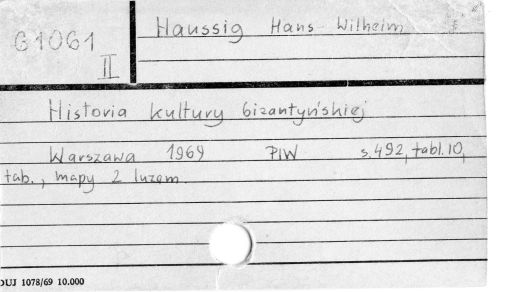 G1061
II
Haussig Hans Wilhelm
Historia kultury bizantyńskiej
Warszawa 1969 PIW s. 492, tabl. 10,
tab., mapy 2 luzem
DUJ 1078/69 10.000